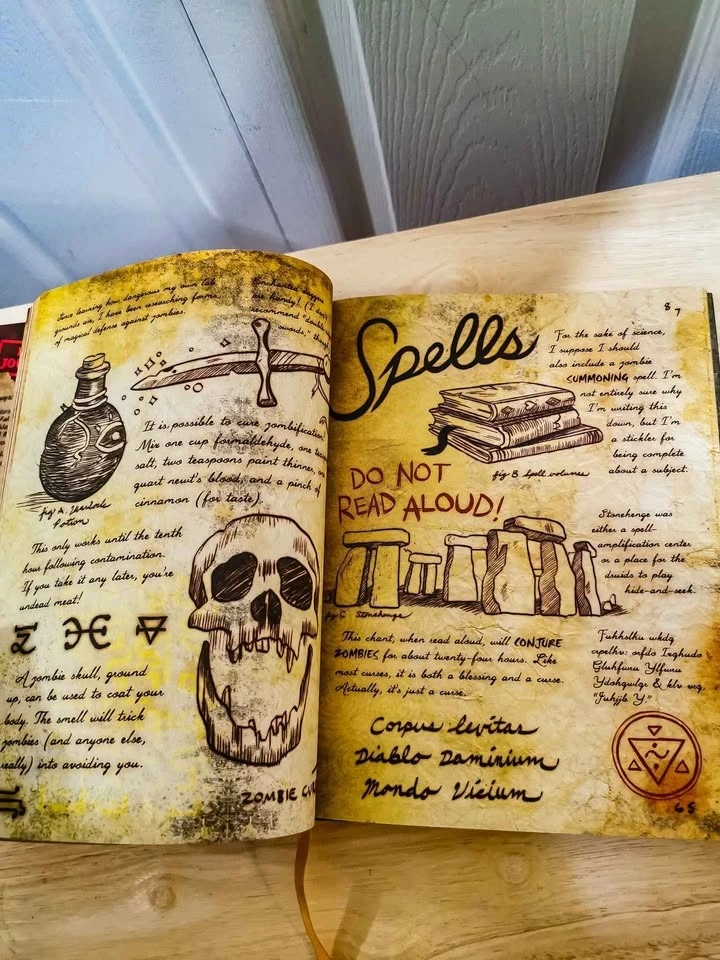 Since learning how dangerous my own lab
grounds are, I have been researching forms
of magical defense against zombies.
Enchanted
are handy! (I
recommend "double
swords,"
It is possible to cure zombification!
Mix one cup formaldehyde, one
salt, two teaspoons paint thinner,
quart newt's blood, and a pinch of
cinnamon (for taste).
fig A.
Potion
This only works until the tenth
hour following contamination.
If you take it any later, you're
undead meat!
A zombie skull, ground
up, can be used to coat your
body. The smell will trick
zombies (and anyone else,
really) into avoiding you.
ZOMBIE
87
Spells
For the sake of science,
I suppose I should
also include a zombie
SUMMONING spell. I'm
not entirely sure why
I'm writing this
down, but I'm
a stickler for
being complete
about a subject.
fig B Spell volumes
DO NOT
READ ALOUD!
Stonehenge was
either a spell-
amplification center
or a place for the
druids to play
hide-and-seek.
fig C Stonehenge
This chant, when read aloud, will CONJURE
ZOMBIES for about twenty-four hours. Like
most curses, it is both a blessing and a curse.
Actually, it's just a curse.
Corpus levitas
Diablo Daminium
Mondo Vicium